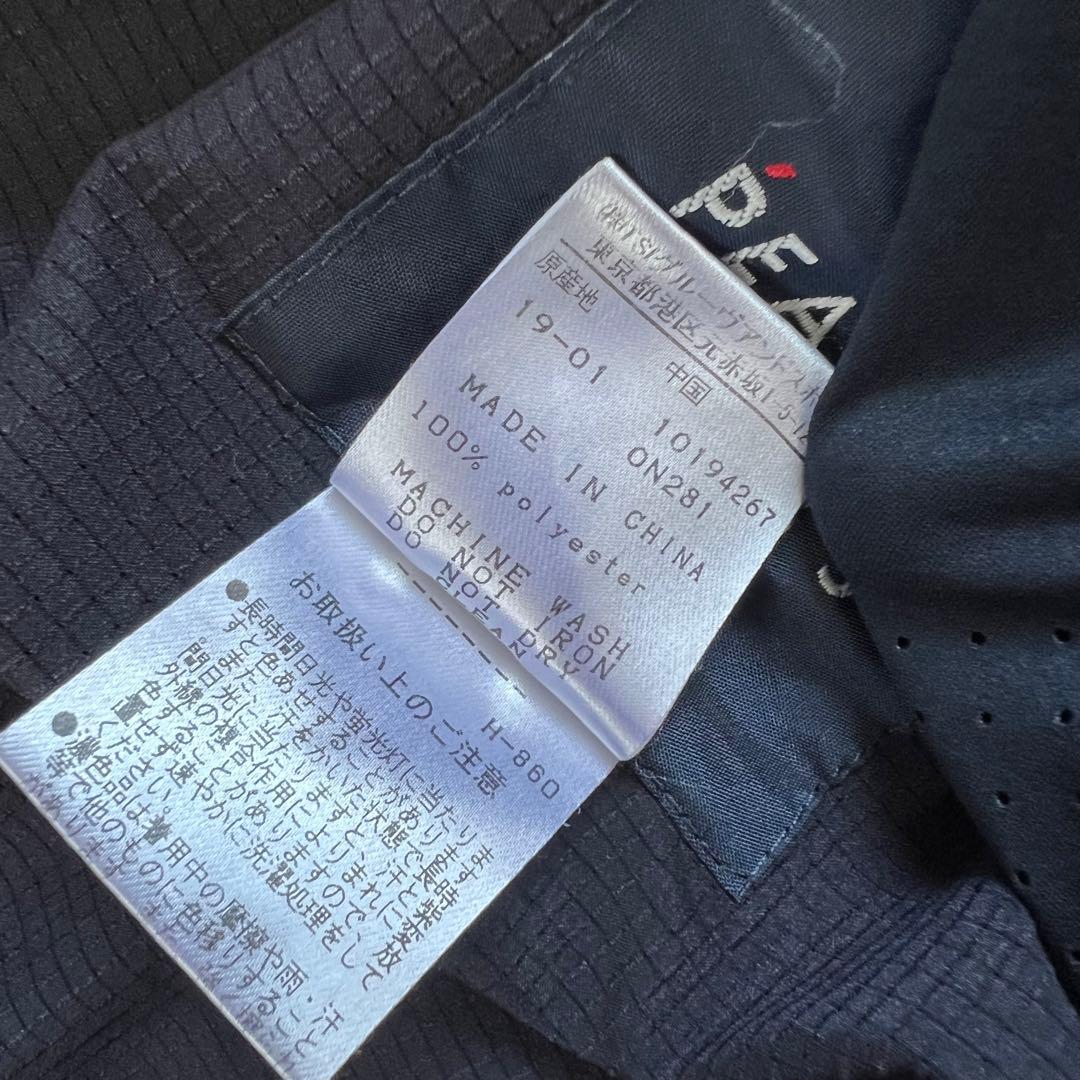 PEA
(株)TSIグルーヴアンドスポ
東京都港区元赤坂1-5-12
原産地 中国
19-01 10194267
ON281
MADE IN CHINA
100% polyester
MACHINE WASH
DO NOT IRON
DO NOT DRY
CLEAN
H-860
お取扱い上のご注意
●長時間日光や蛍光灯に当たりま
すと色あせすることがあります。
また、汗をかいた状態で長時
間日光に当たりますと汗と紫
外線の複合作用によりまれに変
色することがありますので、放
置せず速やかに洗濯処理をして
ください。
●濃色品は着用中の摩擦や雨・汗
等で他のものに色移りすること